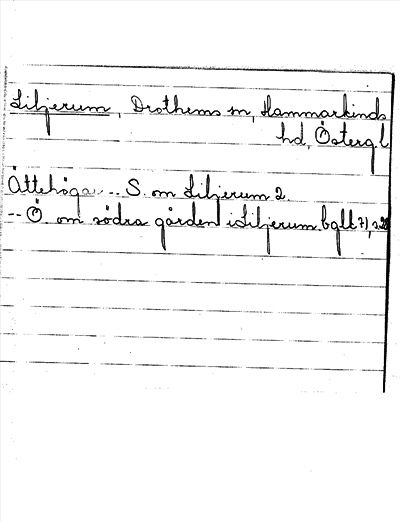 Liljerum, Drothems sn, Hammarkinds
hd, Östergl
Ättehögar -- S. om Liljerum 2.
-- Ö. om södra gården i Liljerum.